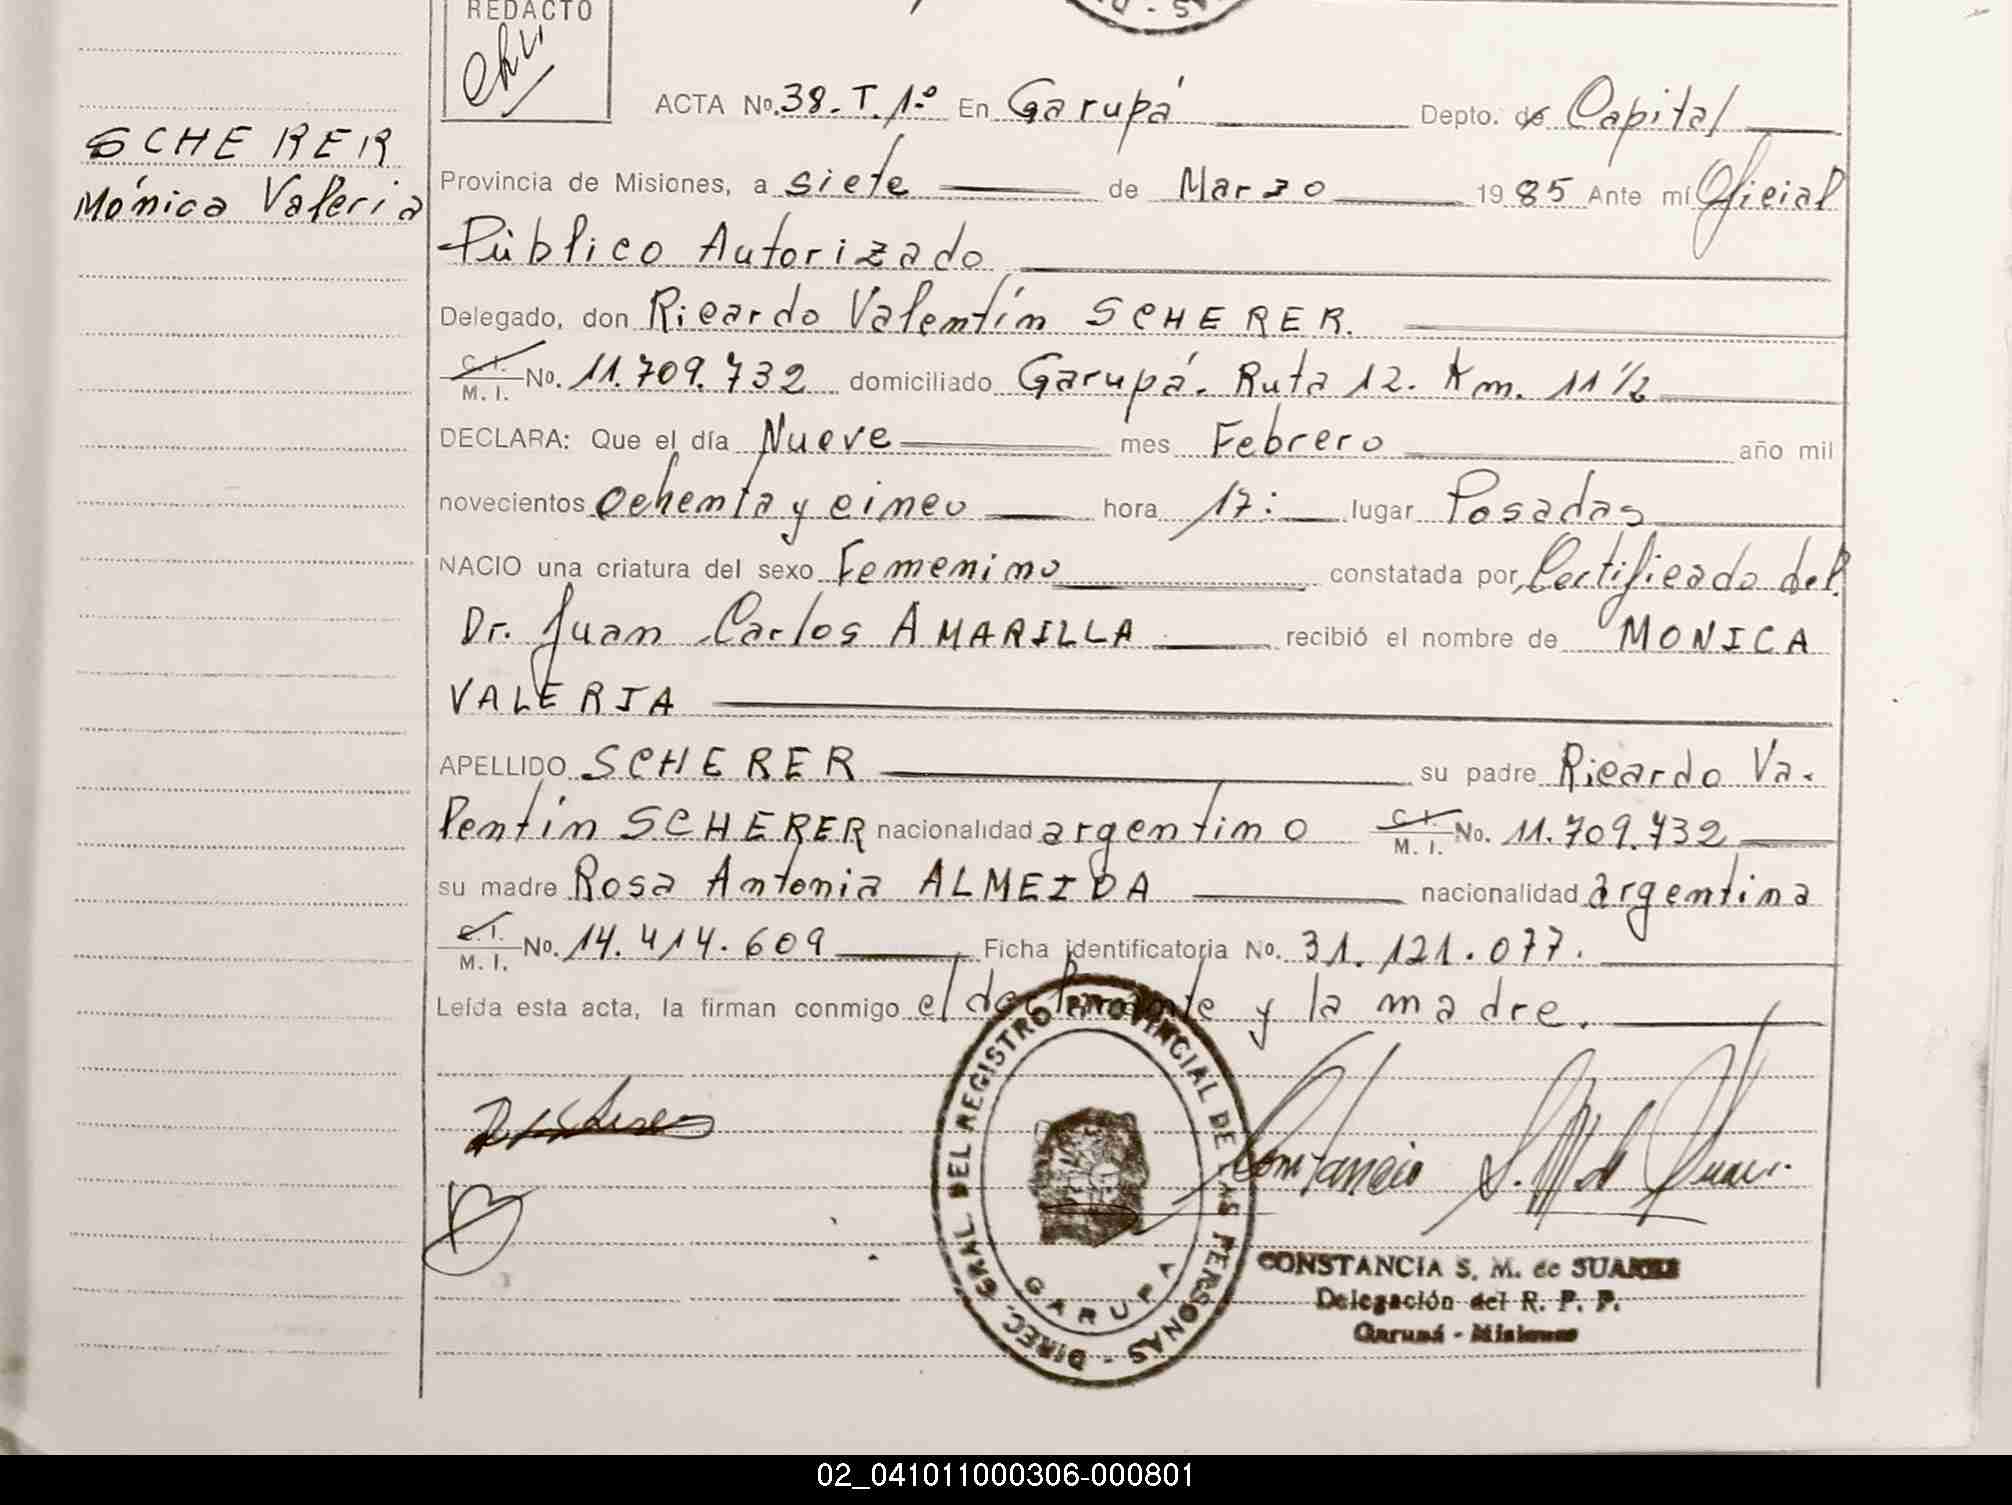 REDACTO
SCHERER
Mónica Valeria
ACTA No. 38. T. 1º En Garupá Depto. de Capital
Provincia de Misiones, a siete de Marzo 1985 Ante mí Oficial
Público Autorizado
Delegado, don Ricardo Valentín SCHERER.
C. I. / M. I. No. 11.709.732 domiciliado Garupá. Ruta 12. Km. 11 1/2
DECLARA: Que el día Nueve mes Febrero año mil
novecientos ochenta y cinco hora 17: lugar Posadas
NACIO una criatura del sexo Femenino constatada por Certificado del
Dr. Juan Carlos AMARILLA recibió el nombre de MONICA
VALERIA
APELLIDO SCHERER su padre Ricardo Va-
lentín SCHERER nacionalidad argentino C. I. / M. I. No. 11.709.732
su madre Rosa Antonia ALMEIDA nacionalidad argentina
C. I. / M. I. No. 14.414.609 Ficha identificatoria No. 31.121.077.
Leída esta acta, la firman conmigo el declarante y la madre.
DIREC. GRAL DEL REGISTRO PROVINCIAL DE LAS PERSONAS -
GARUPA
Constancia S. M. de Suarez
CONSTANCIA S. M. de SUAREZ
Delegación del R. P. P.
Garupá - Misiones
02_041011000306-000801